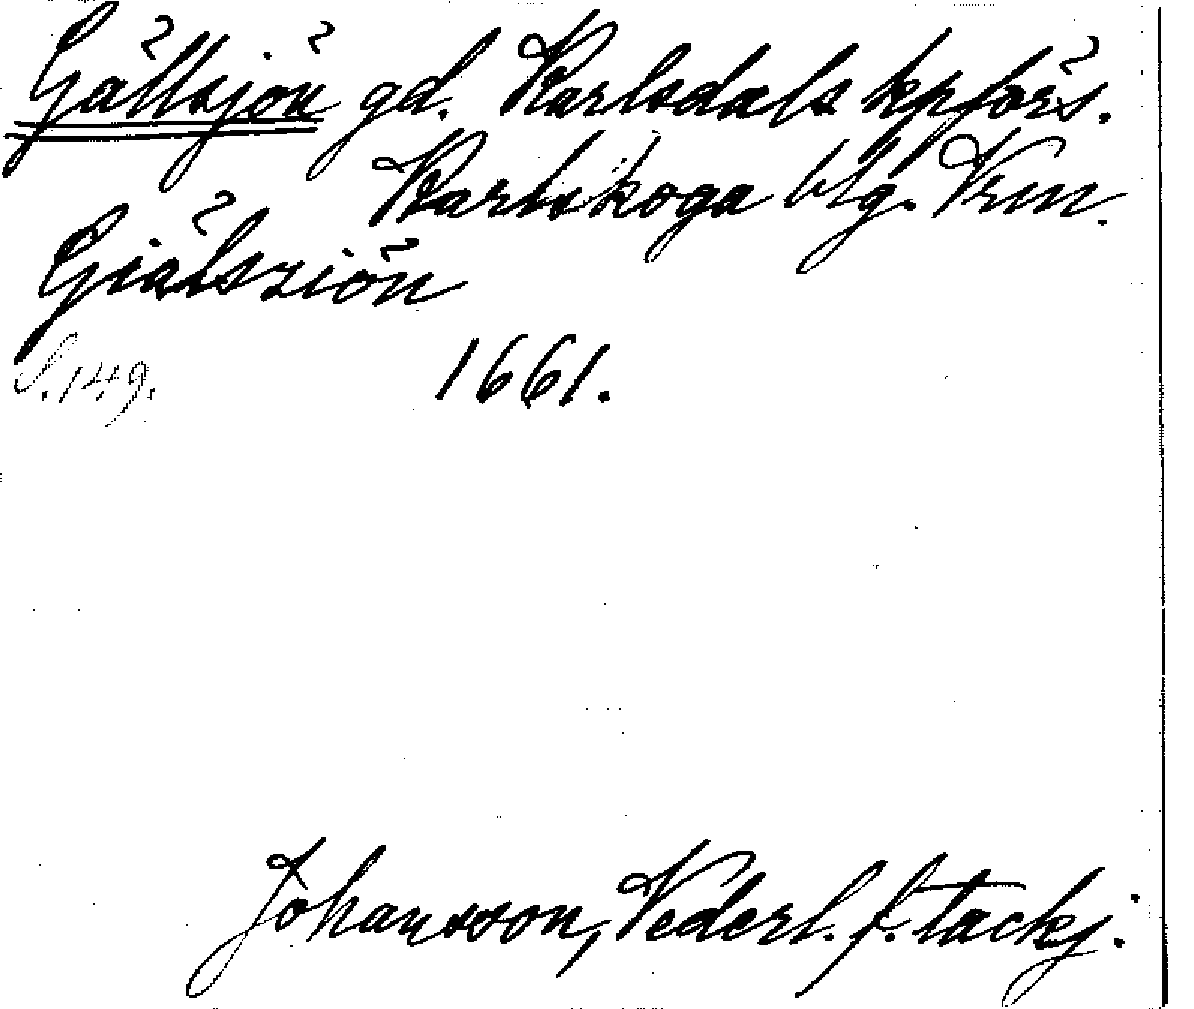 Gällsjön gd. Karlsdals kpförs.
Karlskoga blg. Vrm.
Giälsziön
S. 149. 1661.
Johansson, Vederl. f. tackj.